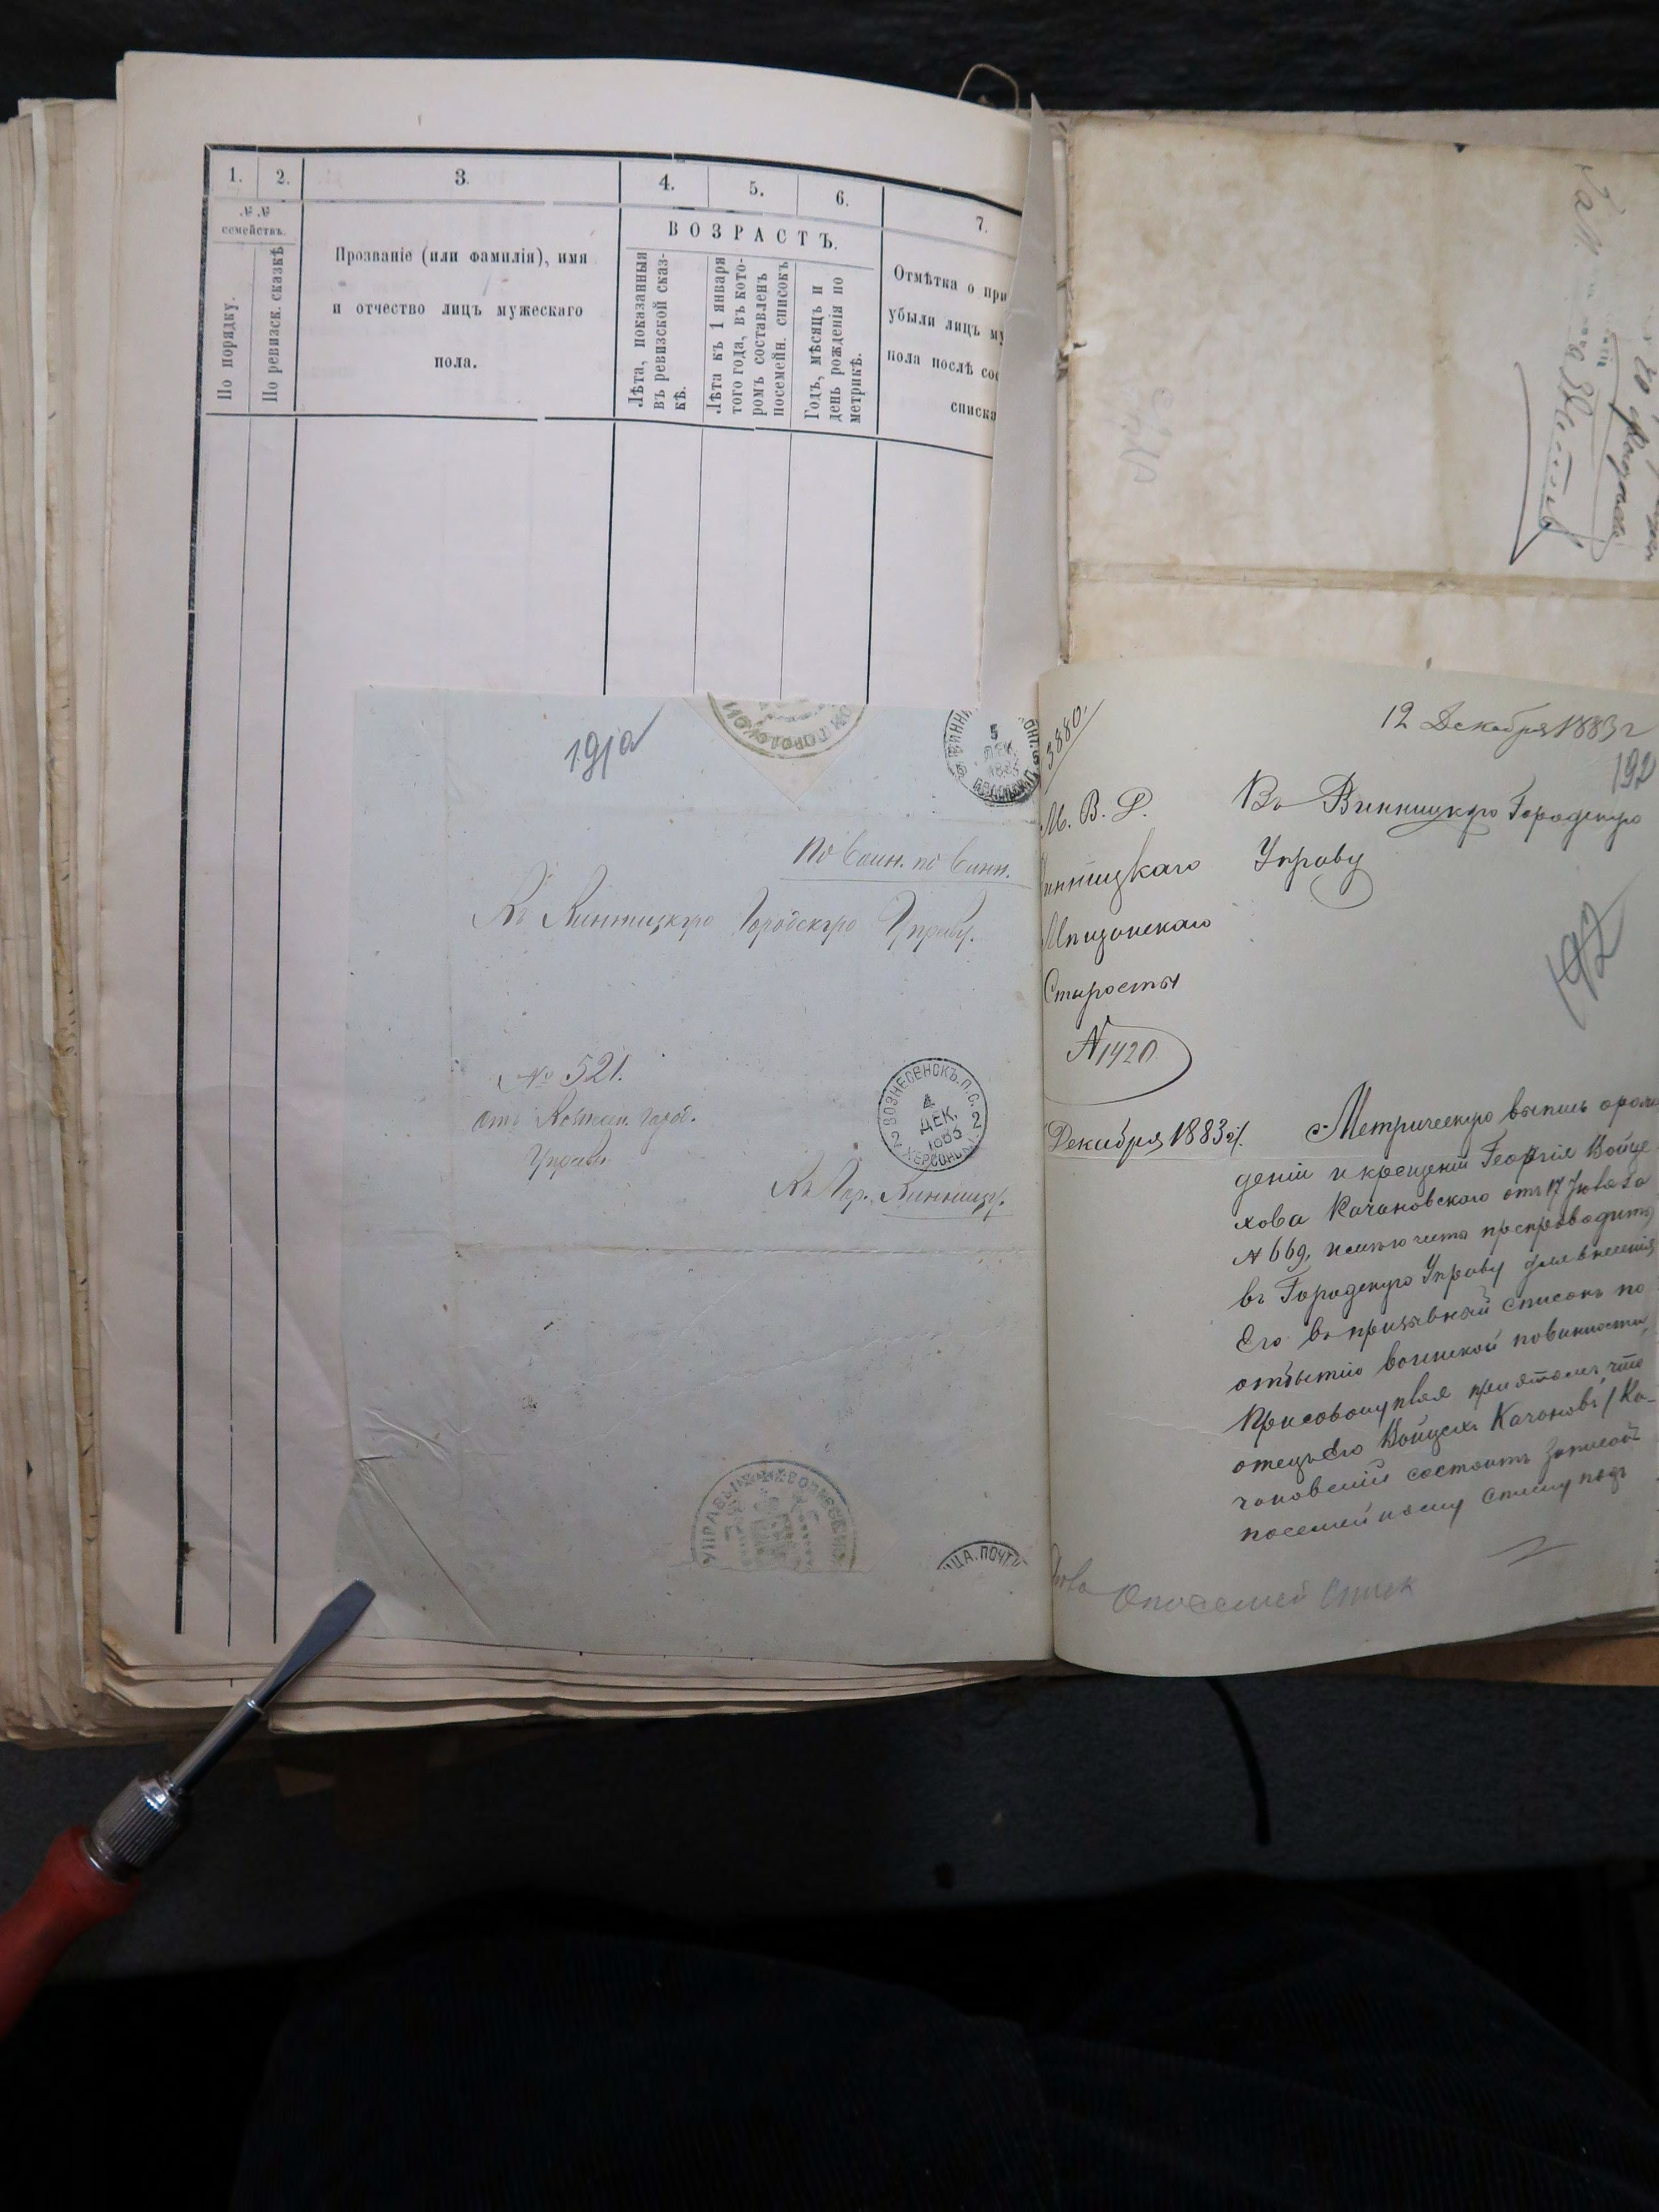 1.
2.
3.
4.
5.
6.
7.
№ №
семействъ.
По порядку.
По ревизск. сказкѣ
Прозваніе (или фамилія), имя
и отчество лицъ мужескаго
пола.
ВОЗРАСТЪ.
Лѣта, показанныя
въ ревизской сказ-
кѣ.
Лѣта къ 1 января
того года, въ кото-
ромъ составленъ
посемейн. списокъ
Годъ, мѣсяцъ и
день рожденія по
метрикѣ.
Отмѣтка о при
убыли лицъ му
пола послѣ сос
списка
191а
5
ДЕК.
По воин. по вин.
Въ Винницкую Городскую Управу.
№ 521.
отъ Вознесен. город.
Управы
ВОЗНЕСЕНСКЪ. П. С.
4
ДЕК.
1883
2 ХЕРСОНЬ. Г. 2
Въ Гор. Винницу.
УПРАВЫ ВОЗНЕСЕНСК
ИЦА. ПОЧТ
3880.
12 Декабря 1883 г
192
М. В. Д.
инницкаго
Мѣщанскаго
Старосты
N 1420
Декабря 1883 г.
Въ Винницкую Городскую
Управу
192
Метрическую выпись о рож
деніи и крещеніи Георгія Войце
хова Качановскаго отъ 17 Іюля за
N 669, препроводить
въ Городскую Управу для внесенія
Его въ призывной списокъ по
отбытію воинской повинности,
Присовокупляя при этомъ, что
отецъ Его Войцехъ Качановъ / Ка-
чановскій состоитъ записан
посемейному списку подъ